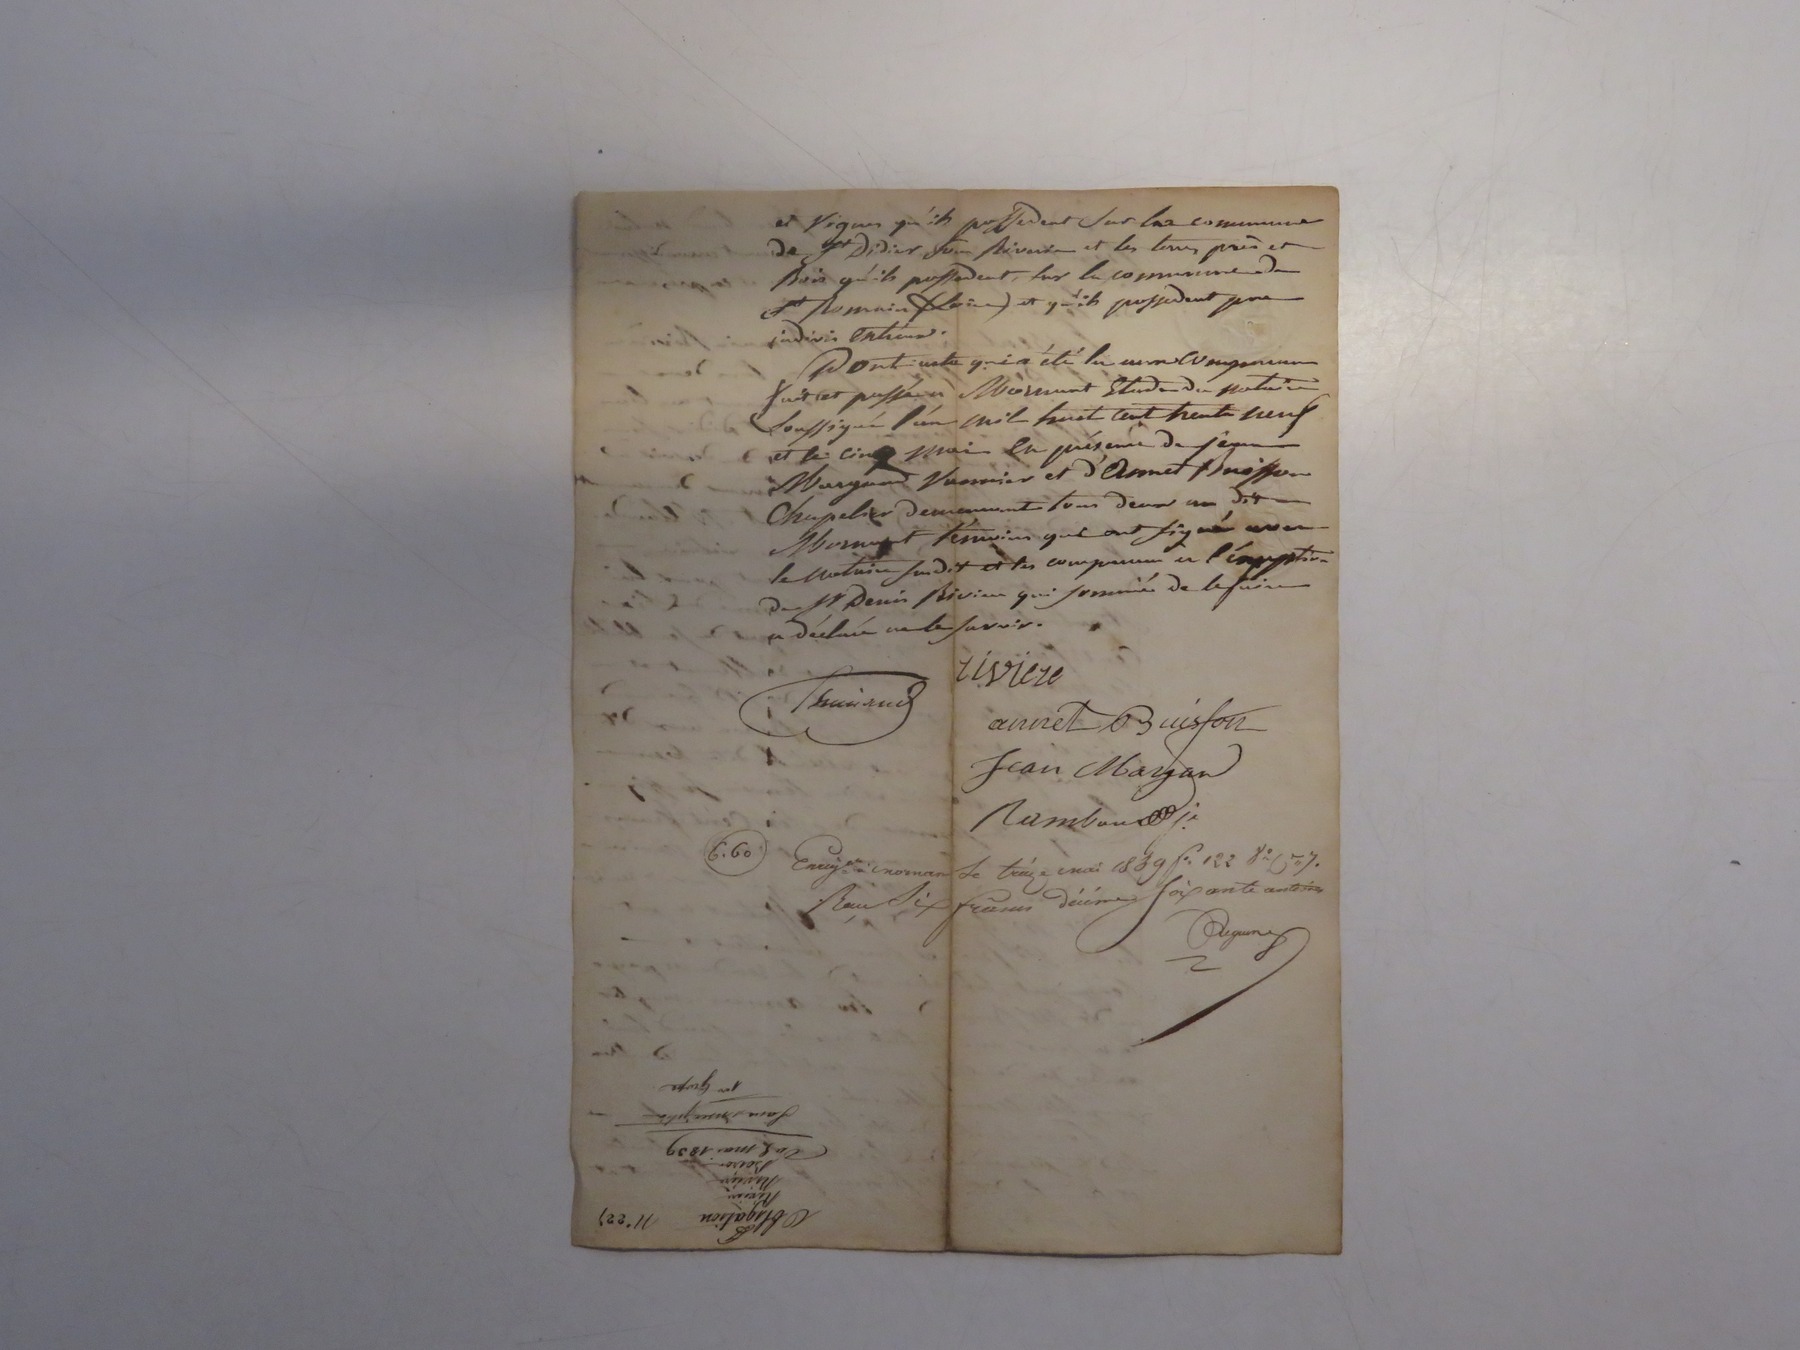 et Vignes qu'ils possedent sur la commune
de St Didier sous Riverie et les terres près et
Bois qu'ils possedent, sur la commune de
St Romain (Loire) et qu'ils possedent par
indivis entreux.
Dont acte qui a été lu aux comparans
fait et passé à Mornant Etude du notaire
soussigné l'an mil huit cent trente neuf
et le cinq mai en présence de Jean
Margand Vannier et d'Annet Buisson
Chapelier demeurant tous deux au dit
Mornant témoins qui ont signé avec
le notaire susdit et les comparans à l'éxception
de Sr Denis Riviere qui sommé de le faire
a déclaré ne le savoir.
riviere
annet Buisson
Jean Margand
6.60
Enregtré à mornant le treize mai 1839 fo 122 Vo C 7.
Reçu Six francs décime soixante centimes
1re Grosse
Du 5 mai 1839
Riviere
Obligation